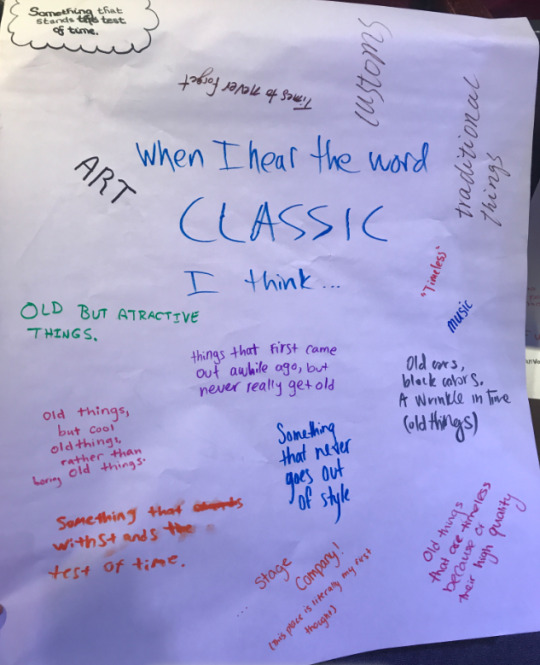 Something that
stands the test
of time.
Times to never forget
customs
traditional
things
ART
When I hear the word
CLASSIC
I think...
"Timeless"
music
OLD BUT ATRACTIVE
THINGS.
things that first came
out awhile ago, but
never really get old
Old cars,
black colors.
A Wrinkle in Time
(old things)
old things,
but cool
old things,
rather than
boring old things.
Something
that never
goes out
of style
Something that
withstands the
test of time.
Old things
that are timeless
because of
their high quality
... Stage
Company!
(this place is literally my first
thought)